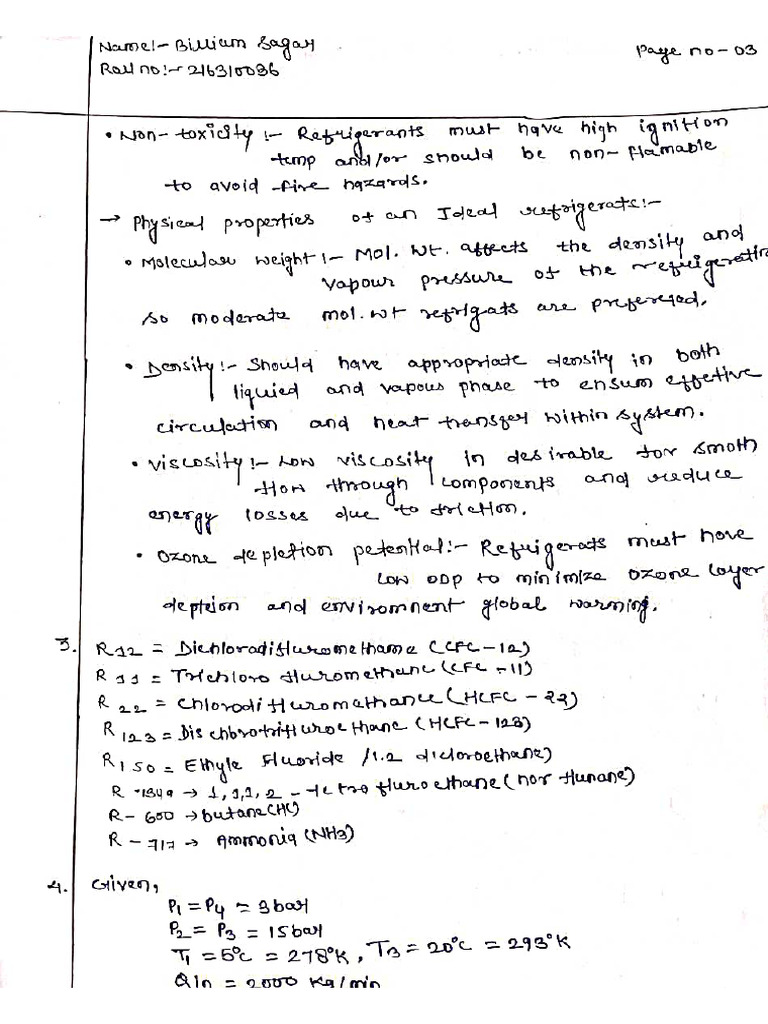 Name:- Billium Sagar
Page no-03
Roll no:- 216310036
• Non-toxicity :- Refrigerants must have high ignition
temp and/or should be non-flamable
to avoid fire hazards.
→ Physical properties of an Ideal refrigerats:-
• Molecular weight :- Mol. wt. affects the density and
vapour pressure of the
so moderate mol.wt refrigats are prefereqd.
• Density :- Should have appropriate density in both
liquied and vapous phase to ensum effetive
circulation and heat transfer within system.
• Viscosity :- Low viscosity in desirable for smoth
flow through components and reduce
energy losses due to friction.
• Ozone depletion potential:- Refrigerats must have
Low ODP to minimize ozone layer
depteion and enviromnent global warming.
3. R12 = Dichloradifluromethame (CFC-12)
R11 = Trichloro fluromethane (CFC-11)
R22 = chlorodifluromethance (HCFC-22)
R123 = Dischlorotrifluroethane (HCFC-123)
R150 = Ethyle Fluoride /1.2 dicloroethane)
R-134a → 1,1,1,2-tetrofluroethane (nor flunane)
R-600 → butane (HC)
R-717 → Ammonia (NH3)
4. Given,
P1 = P4 = 3bar
P2 = P3 = 15bar
T1 = 5°C = 278°K, T3 = 20°C = 293°K
Q1n = 2000 Kg/min